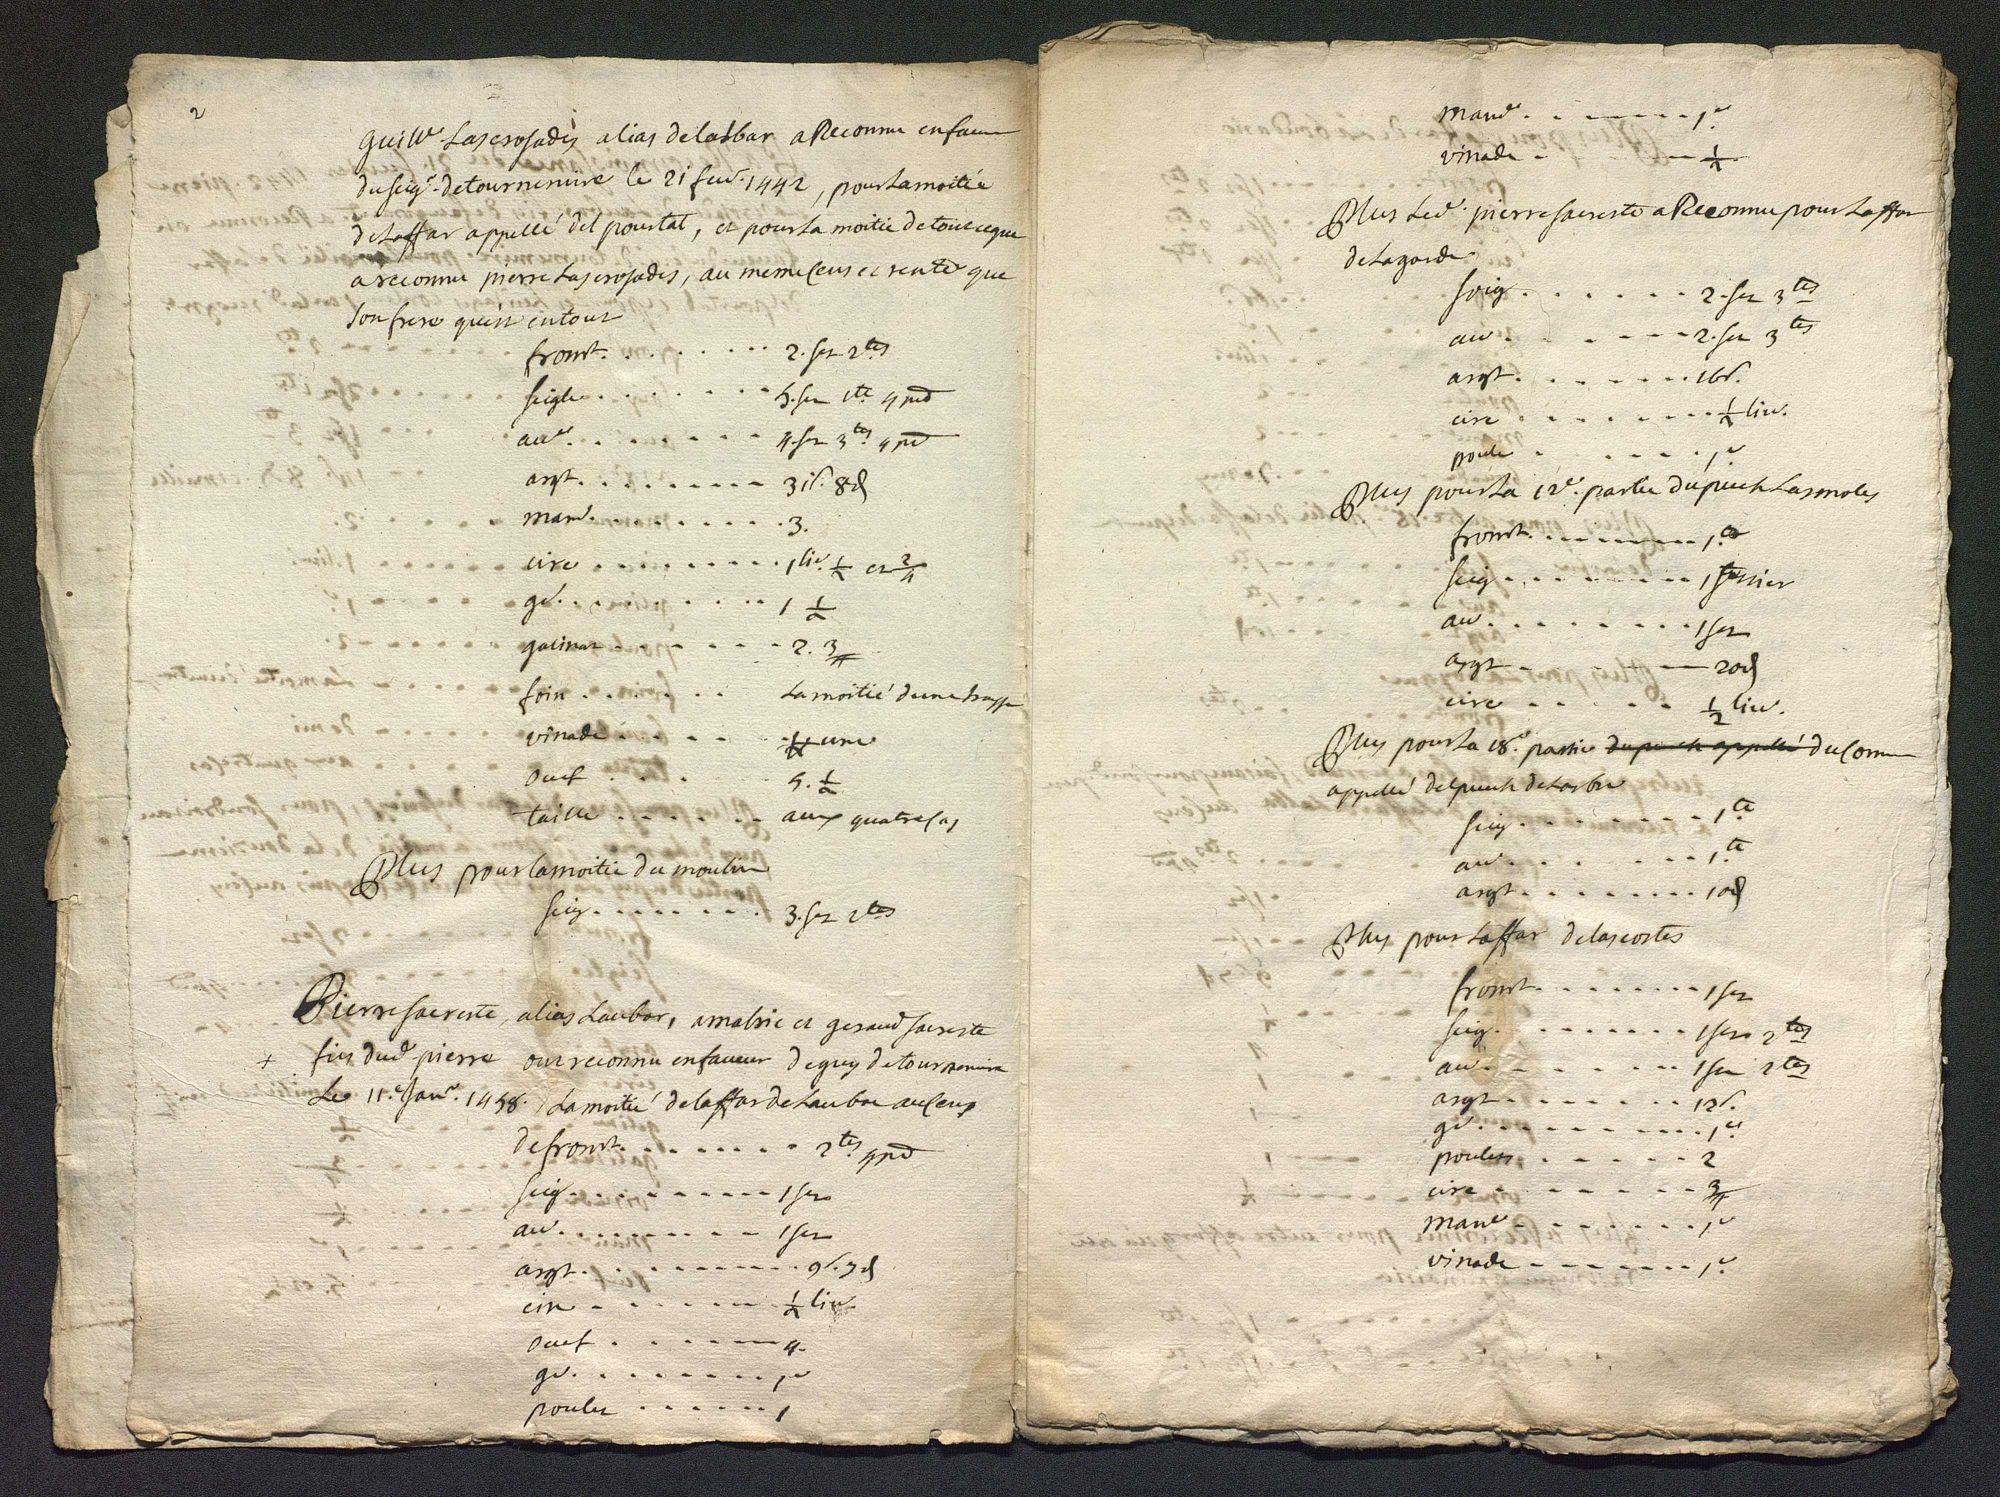 2
Guill.e Lascrosades alias delasbar a Reconnu en faveur
du seig.r de tournemire le 21 feur. 1442, pour la moitié
de Laffar appellé del poustat, et pour la moitie de tout ce que
a reconnu pierre Lascrosades, au meme cens et rente que
son frere qu'est en tout
fromt. . . . . . . . . 2. ser 2tes
seigle . . . . . . . 5. ser 1te 4 pd
aue. . . . . . . . 4. ser 3tes 4 pd
argt. . . . . . . . . 31s. 8d
mane. . . . . . . . 3.
cire . . . . . . . . 1 liv. 1/2 et 2/4
ge. . . . . . . . . 1 1/2
galinas . . . . . . 2. 3/4
foin . . . . . . . La moitié dune
vinade . . . . . une
oeuf . . . . . 5. 1/2
taille . . . . . . aux quatre cas
Plus pour la moitie du moulin
seig. . . . . . . . 3. ser 2tes
Pierre sacreste, alias Laubar, amalric et geraud sacreste
+ fils dud. pierre ont reconnu en faveur de guy de tournemire
Le 11.e Janv. 1458. La moitié de laffar de Laubar au Cens
de fromt. . . . . . . . 2tes 4 pd
seig. . . . . . . . . 1 ser
au. . . . . . . . . 1 ser
argt. . . . . . . . . 9s. 7d
cire . . . . . . . . 1/2 liv.
oeuf . . . . . . . 4.
ge. . . . . . . . . 1e
poulet . . . . . . 1
mane . . . . . . . . 1e
vinade . . . . . . . 1/2
Plus Led. pierre sacreste a Reconnu pour Laffar
de Lagarde
seig. . . . . . . 2. ser 3tes
au. . . . . . . 2. ser 3tes
argt. . . . . . . 16s.
cire . . . . . . . 1/2 liv.
poule . . . . . . 1e
Plus pour La 12e. partie du puech Lasmoles
fromt. . . . . . . . 1te
seig. . . . . . . . 1 sestier
au. . . . . . . . 1 ser
argt. . . . . . . 20d
cire . . . . . . 1/2 liv.
Plus pour La 18e. partie du puech appellé du Comu
appellé del puech de Larbre
seig. . . . . . . . 1te
au. . . . . . . 1te
argt. . . . . . . . 10d
Plus pour Laffar de las costes
fromt. . . . . . . . 1 ser
seig. . . . . . . . 1 ser 2tes
au. . . . . . . . 1 ser 2tes
argt. . . . . . . . 12s.
ge. . . . . . . . . 1e
poulets . . . . . . 2
cire . . . . . . . 3/4
mane . . . . . . . 1e
vinade . . . . . . . 1e